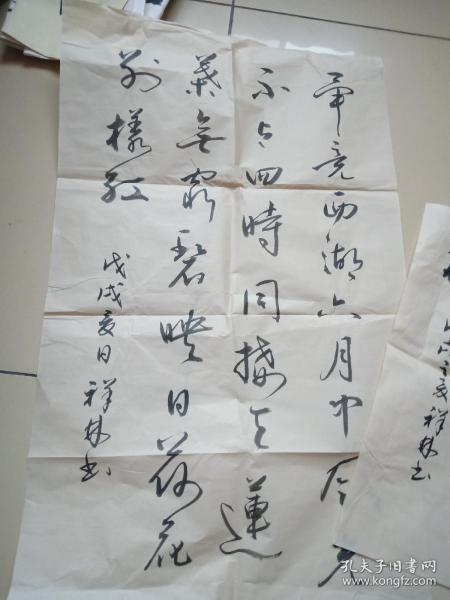 畢竟西湖六月中风光
不与四時同接天蓮
葉無窮碧映日荷花
别樣红
戊戌夏日祥林书
夏祥林书
孔夫子旧书网
www.kongfz.com